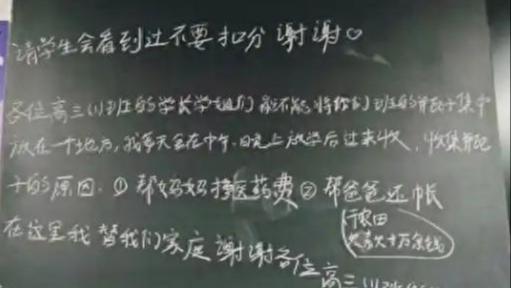 请学生会看到过不要扣分 谢谢♡
各位高三(1)班的学长学姐们 能不能将你们班的瓶子集中
放在一个地方,我每天会在中午、晚上放学后过来收,收集瓶
子的原因.①帮妈妈挣医药费②帮爸爸还帐
农田
欠款十万余钱
在这里我替我们家庭谢谢各位高三(1)班